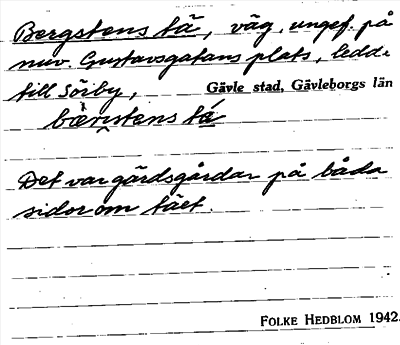 Bergstens tä, väg, ungef. på
nuv. Gustavsgatans plats, ledde
till Sörby,
Gävle stad, Gävleborgs län
bæ̀rstens tá
Det var gärdsgårdar på båda
sidor om täet.
FOLKE HEDBLOM 1942.